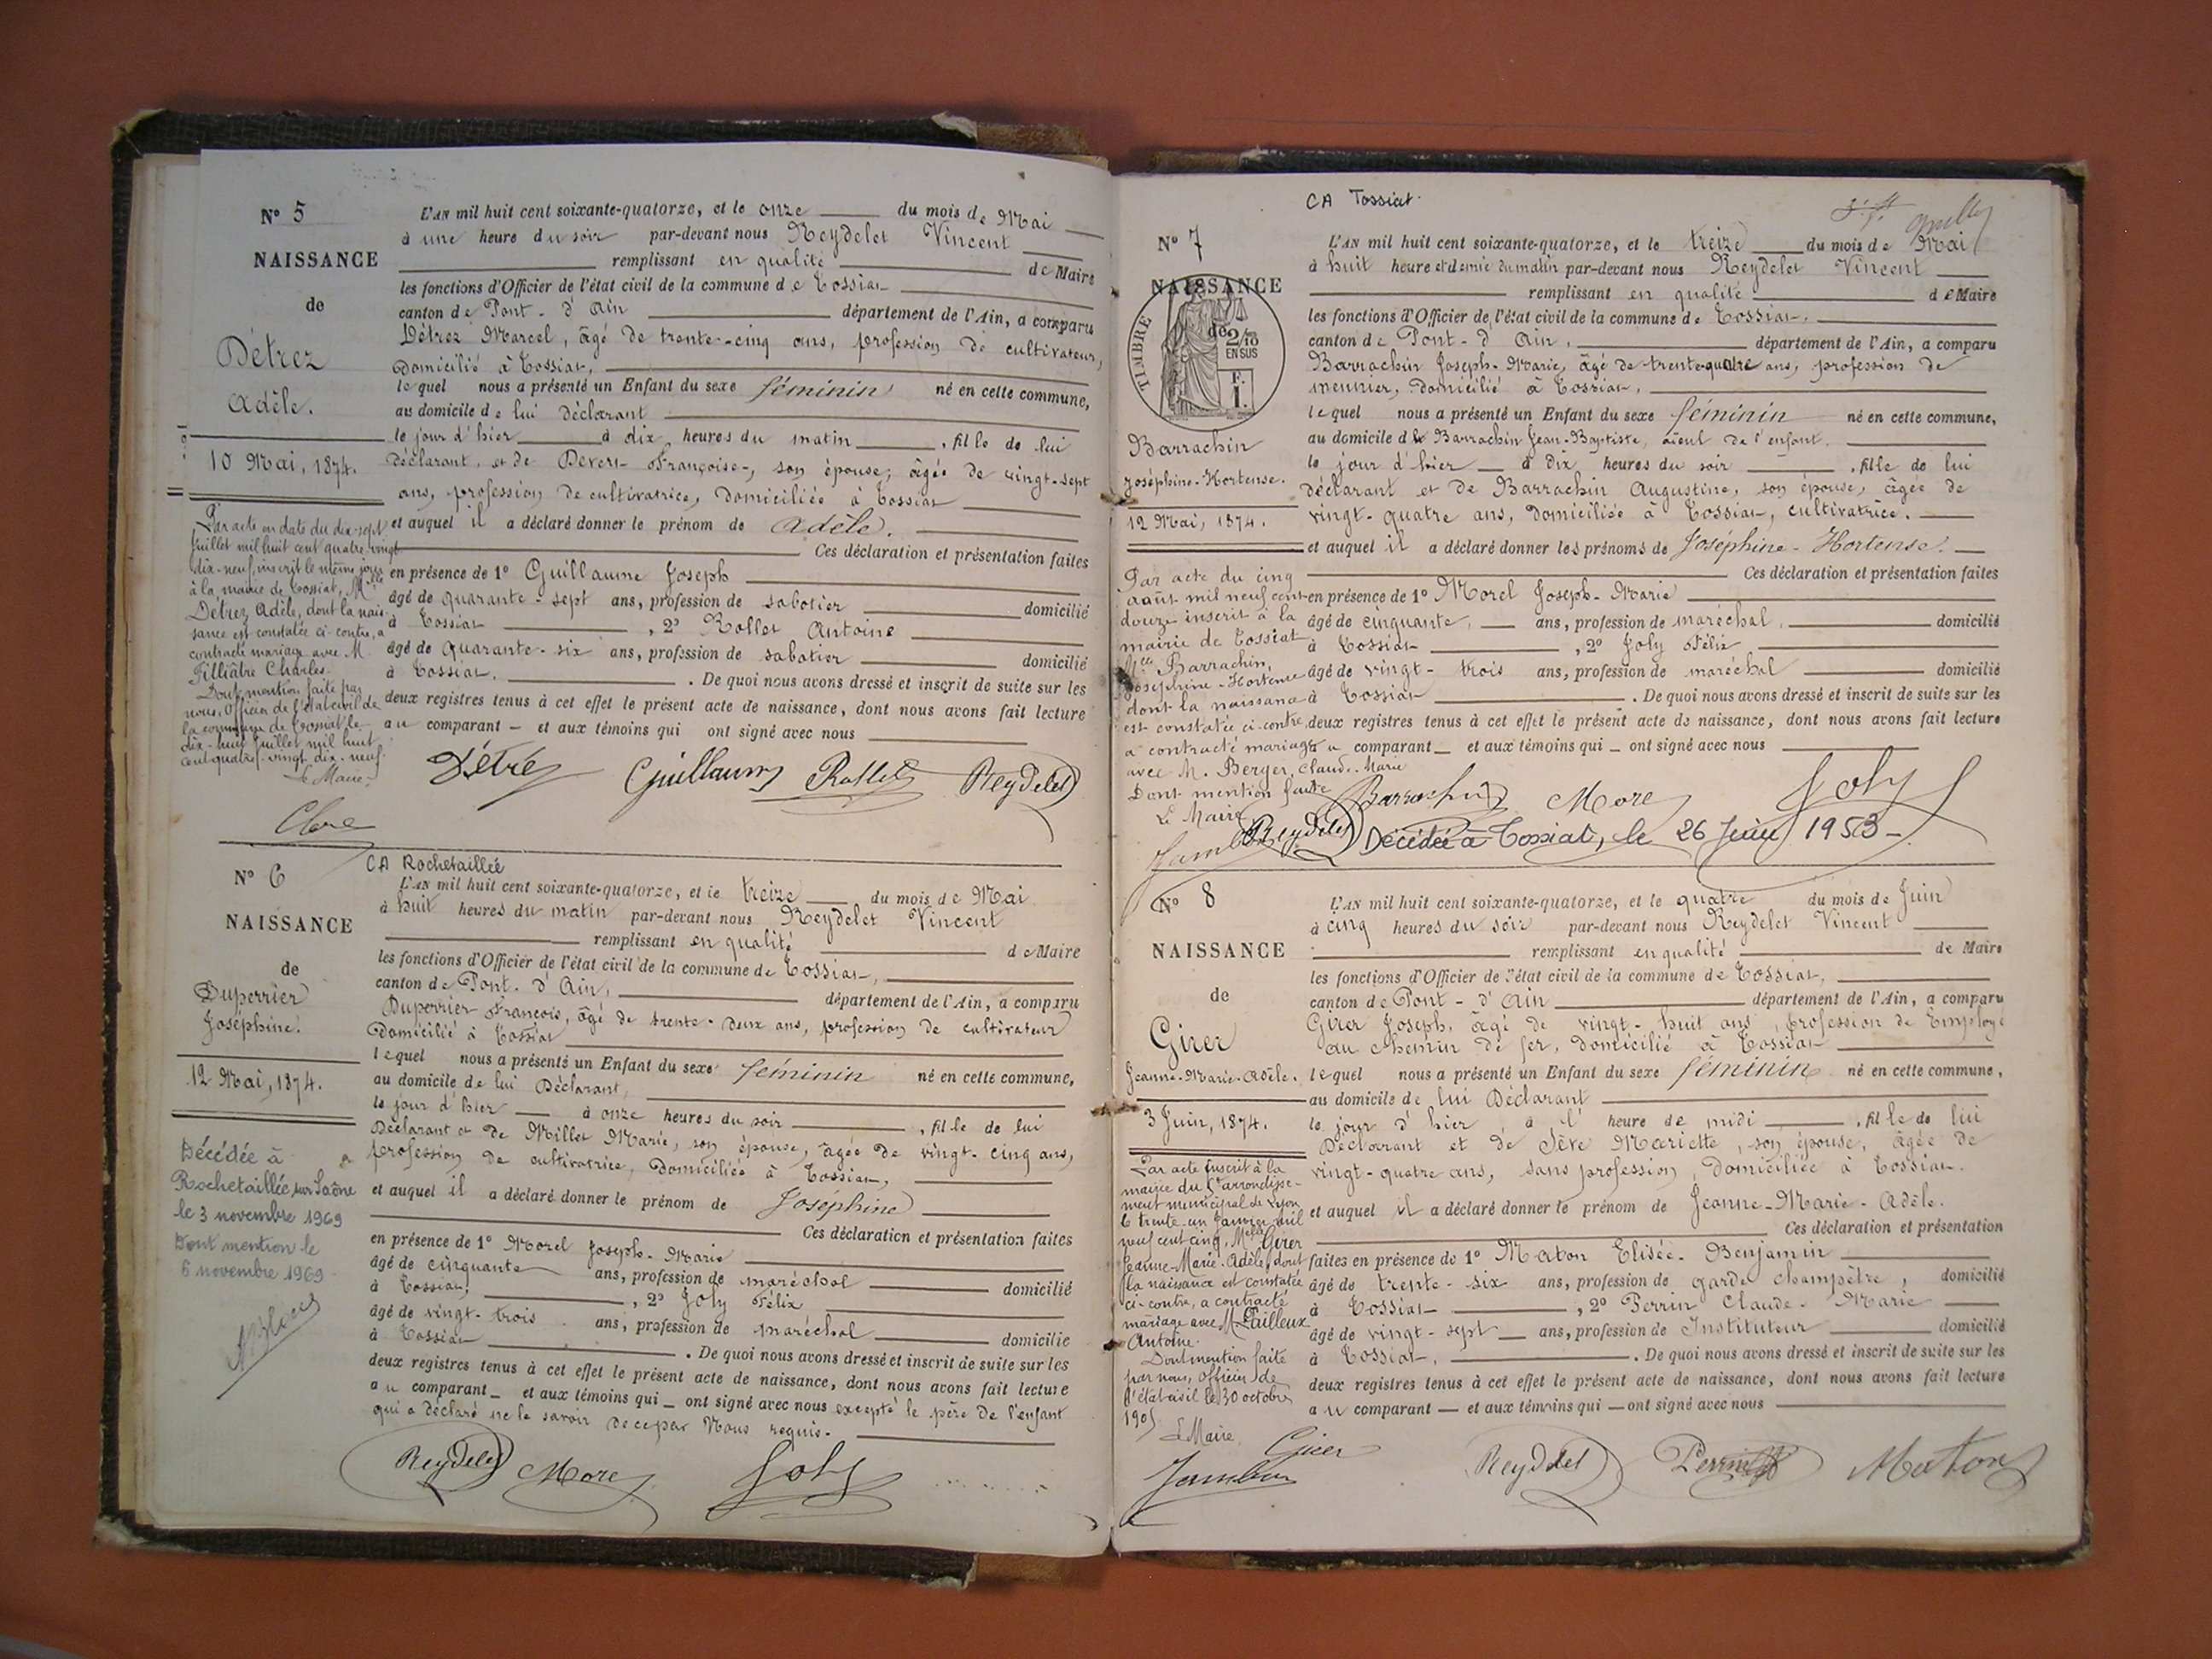 N° 5
NAISSANCE
de
Détrez
Adèle.
10 Mai, 1874.
Par acte en date du dix-sept
Juillet mil huit cent quatre vingt
dix-neuf, inscrit le même jour
à la mairie de Tossiat, Mlle
Détrez Adèle, dont la nais-
sance est constatée ci-contre, a
contracté mariage avec M.
Filliâtre Charles.
Dont mention faite par
nous, Officier de l'état civil de
la commune de Tossiat le
dix-huit Juillet mil huit
cent quatre-vingt dix-neuf.
Le Maire,
L'AN mil huit cent soixante-quatorze, et le onze du mois de Mai
à une heure du soir par-devant nous Reydelet Vincent
remplissant en qualité de Maire
les fonctions d'Officier de l'état civil de la commune de Tossiat
canton de Pont-d'Ain département de l'Ain, a comparu
Détrez Marcel, âgé de trente-cinq ans, profession de cultivateur,
domicilié à Tossiat,
lequel nous a présenté un Enfant du sexe féminin né en cette commune,
au domicile de lui déclarant
le jour d'hier à dix heures du matin, fille de lui
déclarant, et de Devert Françoise, son épouse, âgée de vingt-sept
ans, profession de cultivatrice, domiciliée à Tossiat
et auquel il a déclaré donner le prénom de Adèle.
Ces déclaration et présentation faites
en présence de 1° Guillaume Joseph
âgé de quarante-sept ans, profession de sabotier domicilié
à Tossiat, 2° Rollet Antoine
âgé de quarante-six ans, profession de sabotier domicilié
à Tossiat. De quoi nous avons dressé et inscrit de suite sur les
deux registres tenus à cet effet le présent acte de naissance, dont nous avons fait lecture
au comparant — et aux témoins qui ont signé avec nous
Détrez Guillaume Rollet Reydelet
N° 6
NAISSANCE
de
Duperrier
Joséphine.
12 Mai, 1874.
Décédée à
Rochetaillée sur Saône
le 3 novembre 1969
Dont mention le
6 novembre 1969
CA Rochetaillée
L'AN mil huit cent soixante-quatorze, et le treize du mois de Mai
à huit heures du matin par-devant nous Reydelet Vincent
remplissant en qualité de Maire
les fonctions d'Officier de l'état civil de la commune de Tossiat,
canton de Pont-d'Ain, département de l'Ain, a comparu
Duperrier François, âgé de trente-deux ans, profession de cultivateur
domicilié à Tossiat
lequel nous a présenté un Enfant du sexe féminin né en cette commune,
au domicile de lui déclarant,
le jour d'hier à onze heures du soir, fille de lui
déclarant et de Millet Marie, son épouse, âgée de vingt-cinq ans,
profession de cultivatrice, domiciliée à Tossiat,
et auquel il a déclaré donner le prénom de Joséphine
Ces déclaration et présentation faites
en présence de 1° Morel Joseph-Marie
âgé de cinquante ans, profession de maréchal domicilié
à Tossiat, 2° Joly Félix
âgé de vingt-trois ans, profession de maréchal domicilié
à Tossiat. De quoi nous avons dressé et inscrit de suite sur les
deux registres tenus à cet effet le présent acte de naissance, dont nous avons fait lecture
au comparant — et aux témoins qui — ont signé avec nous excepté le père de l'enfant
qui a déclaré ne le savoir de ce par Nous requis.
Reydelet Morel Joly
CA Tossiat.
N° 7
NAISSANCE
de
TIMBRE
2/10
EN SUS
F.
1.
Barrachin
Joséphine-Hortense.
12 Mai, 1874.
Par acte du cinq
août mil neuf cent
douze inscrit à la
mairie de Tossiat
Mlle Barrachin,
Joséphine-Hortense
dont la naissance
est constatée ci-contre,
a contracté mariage
avec M. Berger, Claude-Marie
Dont mention faite
Le Maire
L'AN mil huit cent soixante-quatorze, et le treize du mois de Mai
à huit heure et demie du matin par-devant nous Reydelet Vincent
remplissant en qualité de Maire
les fonctions d'Officier de l'état civil de la commune de Tossiat,
canton de Pont-d'Ain, département de l'Ain, a comparu
Barrachin Joseph-Marie, âgé de trente-quatre ans, profession de
meunier, domicilié à Tossiat,
lequel nous a présenté un Enfant du sexe féminin né en cette commune,
au domicile de Barrachin Jean-Baptiste, aïeul de l'enfant.
le jour d'hier à dix heures du soir, fille de lui
déclarant et de Barrachin Augustine, son épouse, âgée de
vingt-quatre ans, domiciliée à Tossiat, cultivatrice.
et auquel il a déclaré donner les prénoms de Joséphine-Hortense.
Ces déclaration et présentation faites
en présence de 1° Morel Joseph-Marie
âgé de cinquante, ans, profession de maréchal, domicilié
à Tossiat, 2° Joly Félix
âgé de vingt-trois ans, profession de maréchal domicilié
à Tossiat. De quoi nous avons dressé et inscrit de suite sur les
deux registres tenus à cet effet le présent acte de naissance, dont nous avons fait lecture
au comparant — et aux témoins qui — ont signé avec nous
Barrachin Morel Joly
Reydelet Décédée à Tossiat, le 26 Juin 1953
N° 8
NAISSANCE
de
Girer
Jeanne-Marie-Adèle.
3 Juin, 1874.
Par acte inscrit à la
mairie du arrondisse-
ment municipal de Lyon
le trente-un Janvier mil
neuf cent cinq, Melle Girer
Jeanne-Marie-Adèle, dont
la naissance est constatée
ci-contre, a contracté
mariage avec M. Pailleux
Antoine.
Dont mention faite
par nous, Officier de
l'état civil le 30 octobre
1905
Le Maire,
L'AN mil huit cent soixante-quatorze, et le quatre du mois de Juin
à cinq heures du soir par-devant nous Reydelet Vincent
remplissant en qualité de Maire
les fonctions d'Officier de l'état civil de la commune de Tossiat,
canton de Pont-d'Ain département de l'Ain, a comparu
Girer Joseph, âgé de vingt-huit ans, profession de Employé
au chemin de fer, domicilié à Tossiat
lequel nous a présenté un Enfant du sexe féminin né en cette commune,
au domicile de lui Déclarant
le jour d'hier, à l'heure de midi, fille de lui
Déclarant et de Sève Mariette, son épouse, âgée de
vingt-quatre ans, sans profession, domiciliée à Tossiat.
et auquel il a déclaré donner le prénom de Jeanne-Marie-Adèle.
Ces déclaration et présentation
faites en présence de 1° Maton Elisée-Benjamin
âgé de trente-six ans, profession de garde champêtre, domicilié
à Tossiat, 2° Perrin Claude-Marie
âgé de vingt-sept ans, profession de Instituteur domicilié
à Tossiat. De quoi nous avons dressé et inscrit de suite sur les
deux registres tenus à cet effet le présent acte de naissance, dont nous avons fait lecture
au comparant — et aux témoins qui — ont signé avec nous
Girer Reydelet Perrin Maton